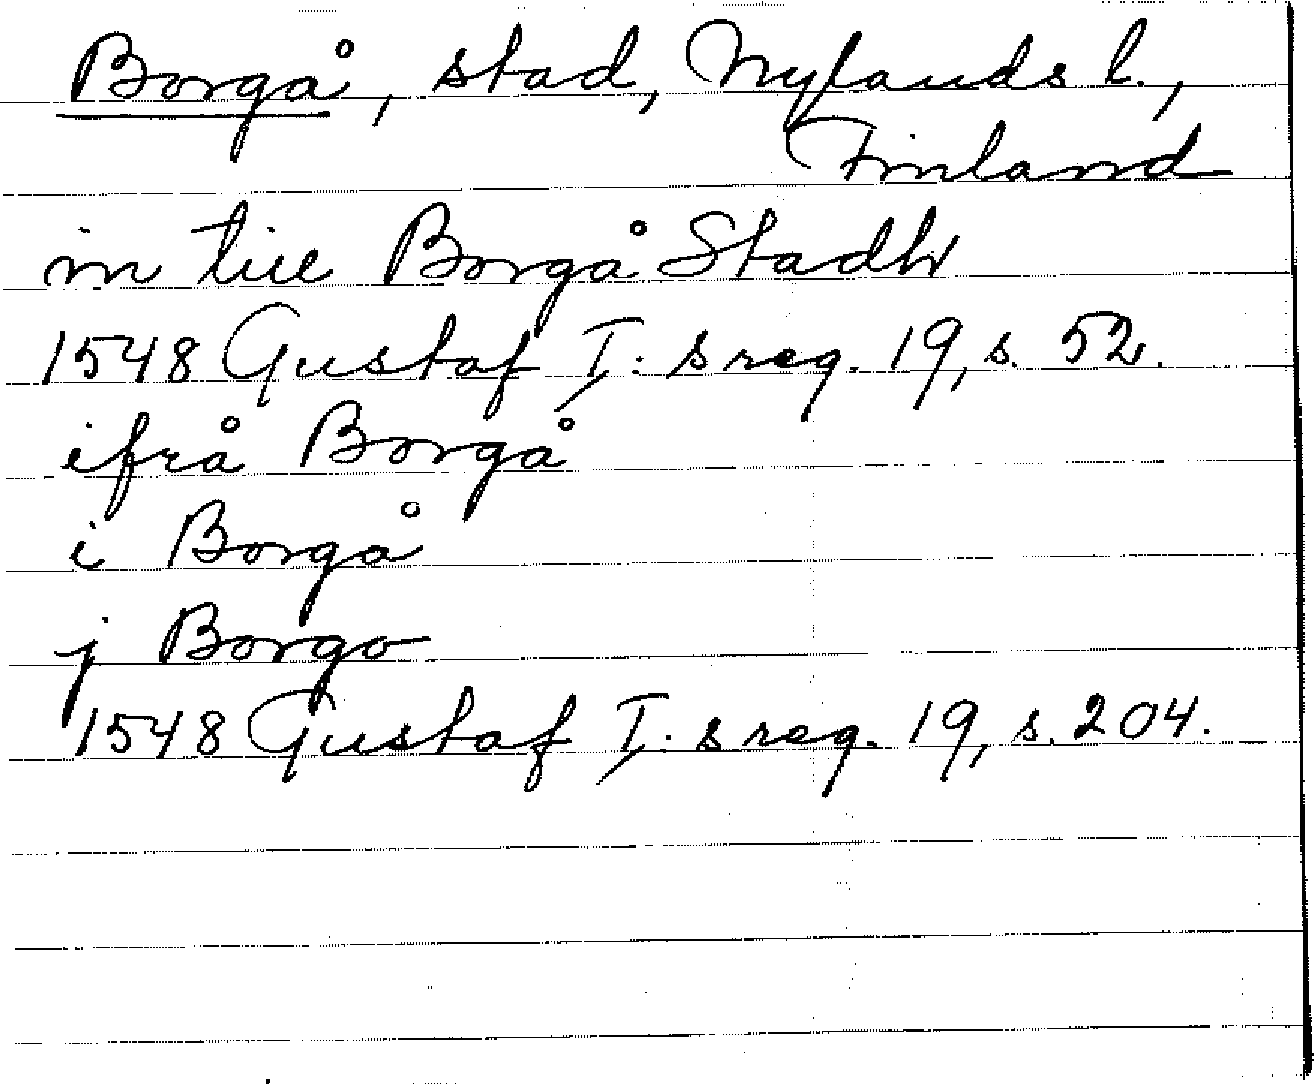 Borgå, stad, Nylands l.,
Finland
in till Borgå Stadh
1548 Gustaf I: s reg. 19, s. 52.
ifrå Borgå
i Borgå
j Borgo
1548 Gustaf I: s reg. 19, s. 204.